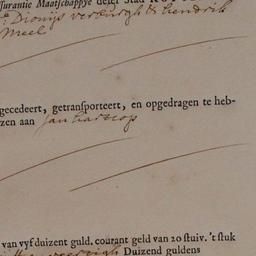 surantie Maatschappye deser Stad
Dionijs verburgh & hendrik
Meel
gecedeert, getransporteert, en opgedragen te heb-
zen aan Jan hartrop
van vyf duizent guld. courant geld van 20 stuiv. 't stuk
Duizend guldens